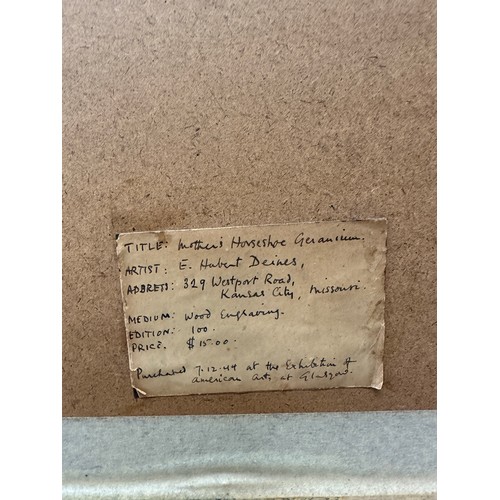 TITLE: Mother's Horseshoe Geranium.
ARTIST: E. Hubert Deines,
ADDRESS: 329 Westport Road,
Kansas City, Missouri.
MEDIUM: Wood Engraving.
EDITION: 100.
PRICE. $15.00.
Purchased 7.12.44 at the Exhibition of
American Arts at Glasgow.